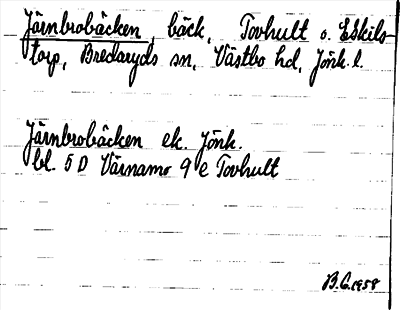 Järnbrobäcken, bäck, Tovhult o. Eskils-
torp, Bredaryds sn, Västbo hd, Jönk. l.
Järnbrobäcken ek. Jönk.
bl. 5 D Värnamo 9 e Tovhult
B.G. 1958